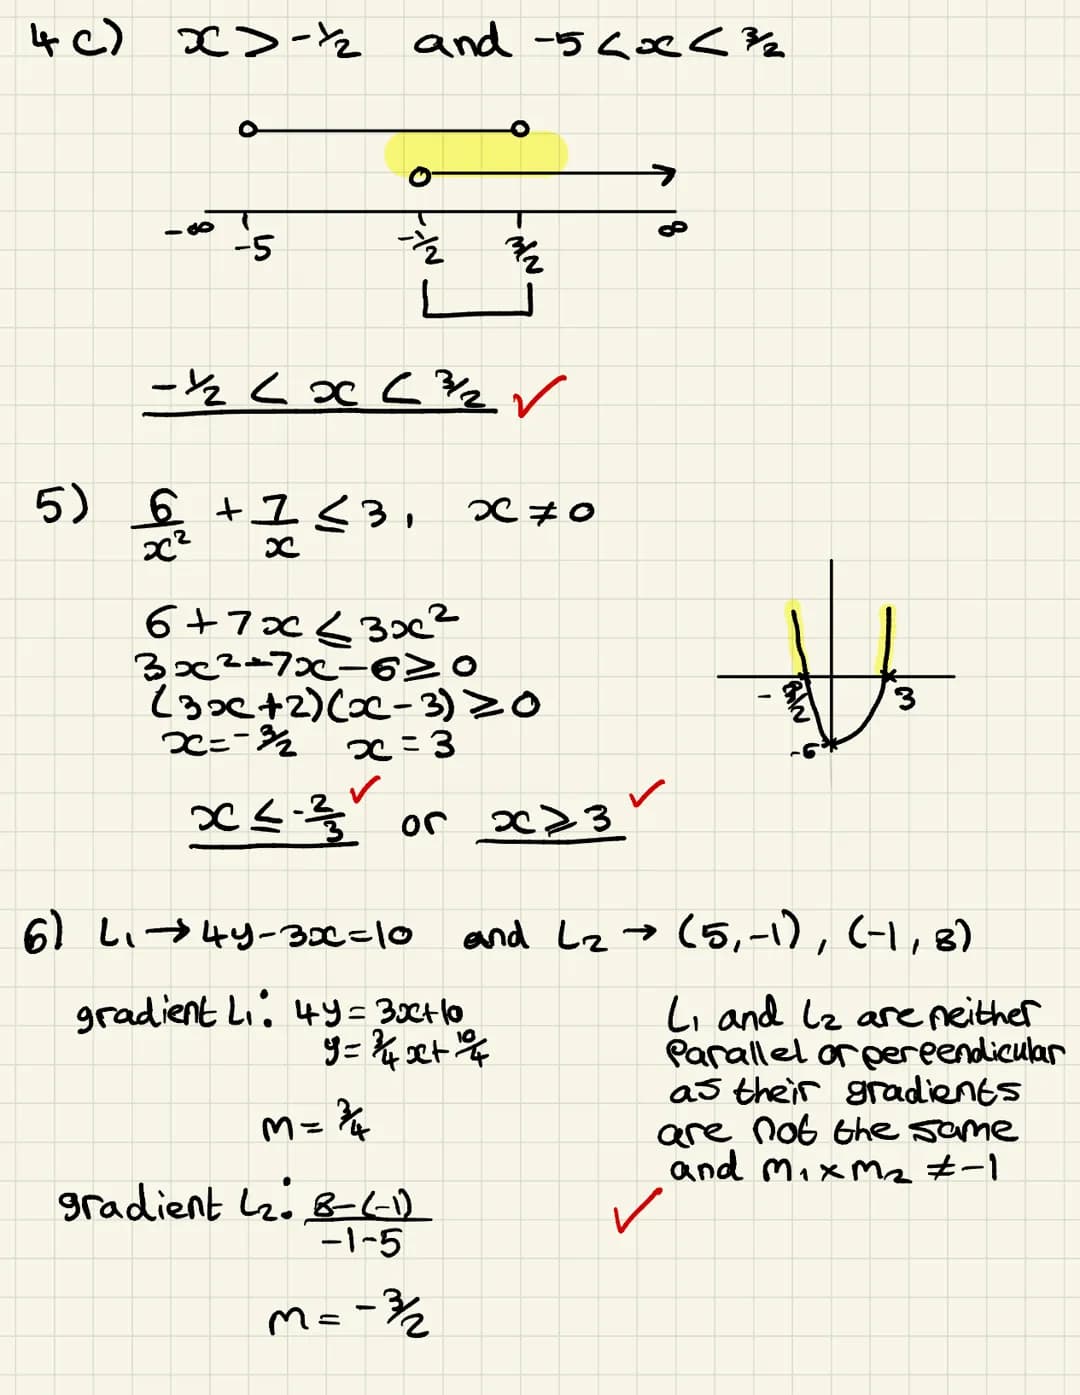 4c) x > -1/2 and -5 < x < 3/2
-∞ -5 -1/2 3/2 ∞
-1/2 < x < 3/2 ✓
5) 6/x² + 7/x ≤ 3, x ≠ 0
6 + 7x ≤ 3x²
3x² - 7x - 6 ≥ 0
(3x+2)(x-3) ≥ 0
x = -3/2 x = 3
- 3/2 3
-6
x ≤ -2/3 ✓ or x ≥ 3 ✓
6) L₁ → 4y - 3x = 10 and L₂ → (5,-1), (-1,8)
gradient L₁: 4y = 3x+10
y = 3/4 x + 10/4
m = 3/4
gradient L₂: 8-(-1)/-1-5
m = -3/2
L₁ and L₂ are neither
parallel or perpendicular
as their gradients
are not the same
and m₁ x m₂ ≠ -1
✓